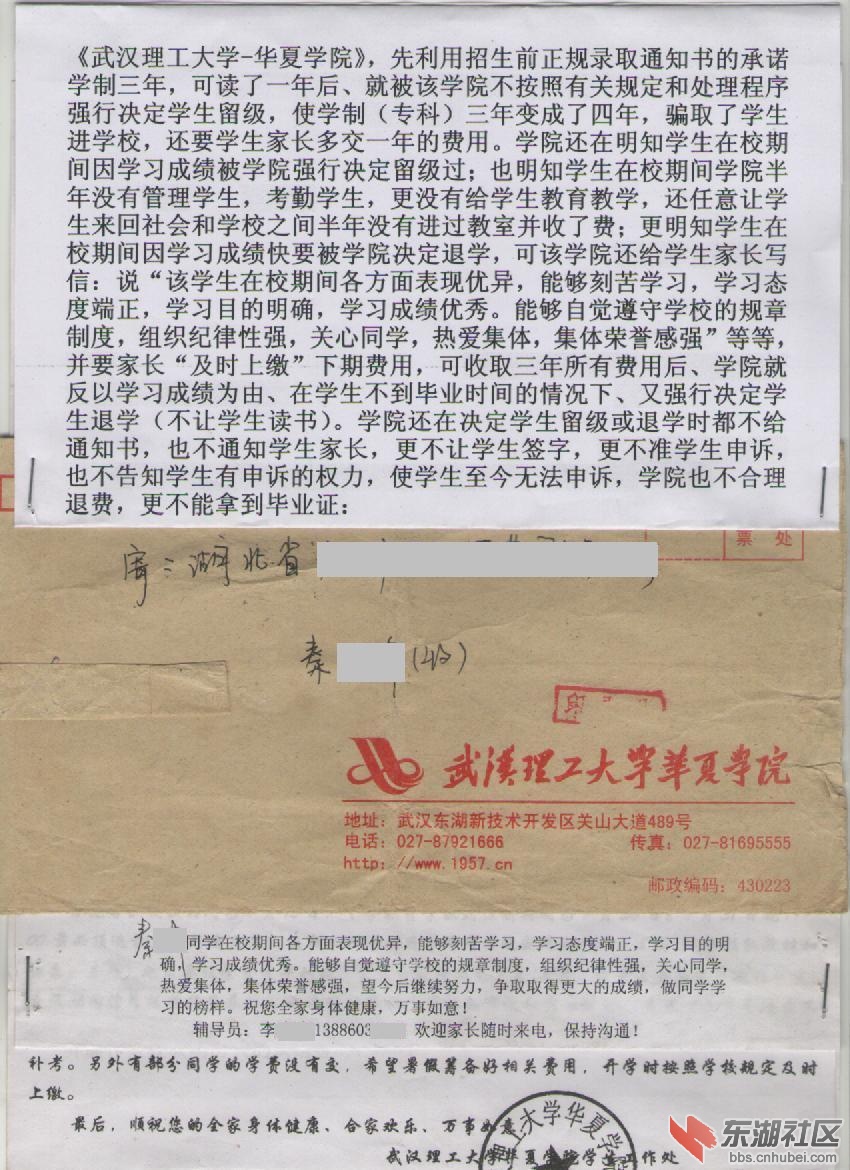 《武汉理工大学-华夏学院》，先利用招生前正规录取通知书的承诺
学制三年，可读了一年后、就被该学院不按照有关规定和处理程序
强行决定学生留级，使学制（专科）三年变成了四年，骗取了学生
进学校，还要学生家长多交一年的费用。学院还在明知学生在校期
间因学习成绩被学院强行决定留级过；也明知学生在校期间学院半
年没有管理学生，考勤学生，更没有给学生教育教学，还任意让学
生来回社会和学校之间半年没有进过教室并收了费；更明知学生在
校期间因学习成绩快要被学院决定退学，可该学院还给学生家长写
信：说“该学生在校期间各方面表现优异，能够刻苦学习，学习态
度端正，学习目的明确，学习成绩优秀。能够自觉遵守学校的规章
制度，组织纪律性强，关心同学，热爱集体，集体荣誉感强”等等，
并要家长“及时上缴”下期费用，可收取三年所有费用后、学院就
反以学习成绩为由、在学生不到毕业时间的情况下、又强行决定学
生退学（不让学生读书）。学院还在决定学生留级或退学时都不给
通知书，也不通知学生家长，更不让学生签字，更不准学生申诉，
也不告知学生有申诉的权力，使学生至今无法申诉，学院也不合理
退费，更不能拿到毕业证：
票 处
寄：湖北省
秦 （收）
武汉理工大学华夏学院
地址：武汉东湖新技术开发区关山大道489号
电话：027-87921666 传真：027-81695555
http：//www.1957.cn
邮政编码：430223
秦 同学在校期间各方面表现优异，能够刻苦学习，学习态度端正，学习目的明
确，学习成绩优秀。能够自觉遵守学校的规章制度，组织纪律性强，关心同学，
热爱集体，集体荣誉感强，望今后继续努力，争取取得更大的成绩，做同学学
习的榜样。祝您全家身体健康，万事如意！
辅导员：李 1388603 欢迎家长随时来电，保持沟通！
补考。另外有部分同学的学费没有交，希望暑假筹备好相关费用，开学时按照学校规定及时
上缴。
最后，顺祝您的全家身体健康、合家欢乐、万事如意
武汉理工大学华夏学院学生工作处
理工大学华夏学院
东湖社区
bbs.cnhubei.com